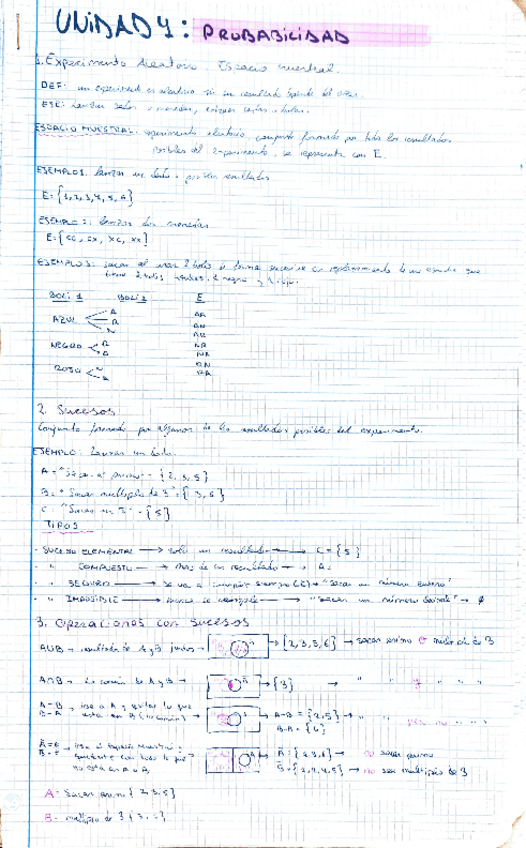 UNIDAD 4: PROBABILIDAD
1. Experimento Aleatorio. Espacio muestral.
DEF: un experimento es aleatorio si su resultado depende del azar.
EJE: Lanzar dados, monedas, cartas, bolas.
ESPACIO MUESTRAL: experimento aleatorio, conjunto formado por todos los resultados
posibles del experimento. se representa con E.
EJEMPLO 1: lanzar un dado, posibles resultados
E={1,2,3,4,5,6}
EJEMPLO 2: lanzar dos monedas
E={cc, cx, xc, xx}
EJEMPLO 3: sacar al azar 2 bolis de forma sucesiva
BOLI 1 BOLI 2 E
AZUL A R N
AA
AR
AN
NEGRO
ROJO
2. Sucesos
Conjunto formado por algunos de los resultados posibles del experimento.
EJEMPLO: Lanzar un dado.
A = "Sacar nº primo" = {2,3,5}
B = "Sacar multiplo de 3" = {3,6}
C = "Sacar un 5" = {5}
TIPOS
- SUCESO ELEMENTAL → solo un resultado → C = {5}
- " COMPUESTO → mas de un resultado → A,
- " SEGURO → se va a cumplir siempre (E) → "Sacar un número entero"
- " IMPOSIBLE → nunca se cumple → "sacar un número decimal" → ∅
3. Operaciones con sucesos
AUB → resultado de A y B juntos → {2,3,5,6} → sacar primo o multiplo de 3
A∩B → Lo común de A y B → {3} → " " y " "
A-B → irse a A y quitar lo que
B-A está en B (lo común) → A-B = {2,5} → "
B-A = {6}
irse al espacio muestral y
quedarte con todo lo que
no está en A o B. Ā = → no sacar primo
B̄ = {1,2,4,5} → no sea multiplo de 3
A = Sacar primo {2,3,5}
B = multiplo de 3